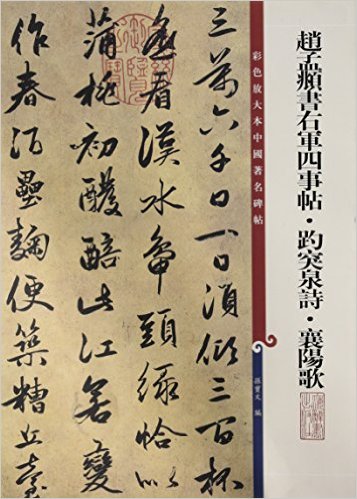 趙孟頫書右軍四事帖・趵突泉詩・襄陽歌
彩色放大本中國著名碑帖
孫寶文 編
三萬六千日一日須傾三百杯
遙看漢水鴨頭綠恰似
蒲桃初醱醅此江若變
作春酒壘麹便築糟丘臺